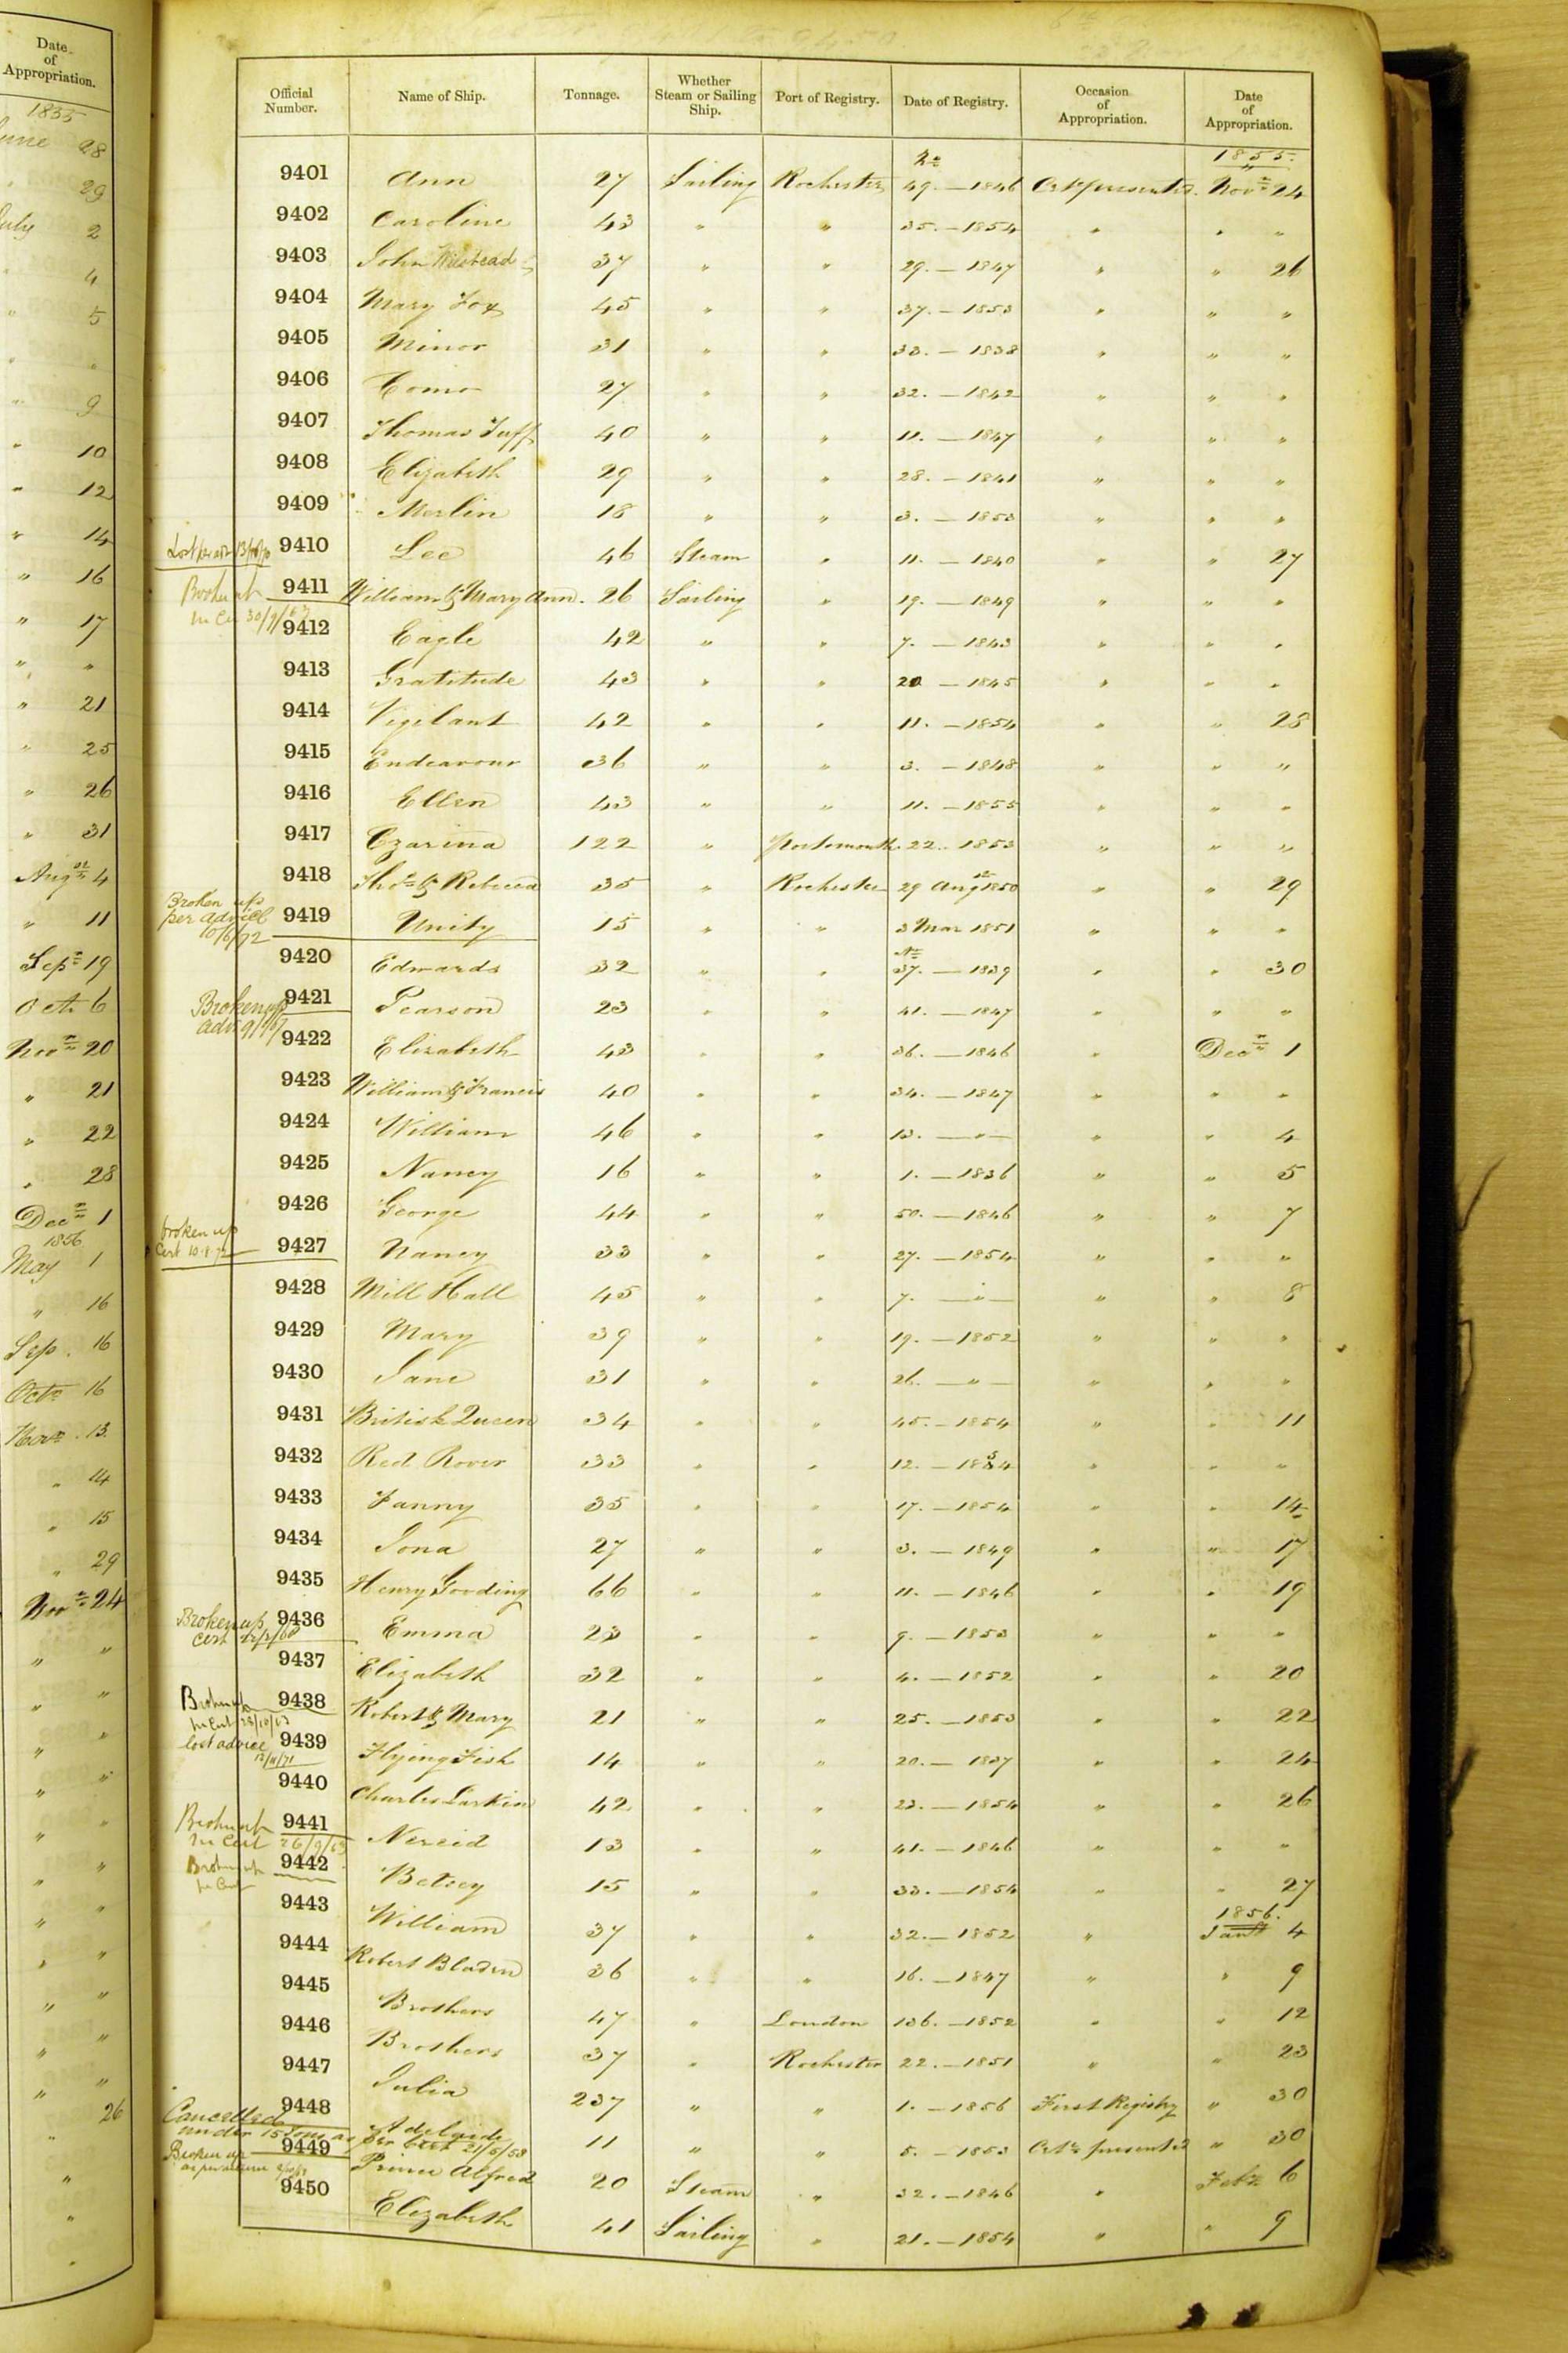 Date of Appropriation.
1835
June 28
" 29
July 2
" 4
" 5
" "
" 9
" 10
" 12
" 14
" 16
" 17
" "
" 21
" 25
" 26
" 31
Augst 4
" 11
Sepr 19
Octr 6
Novr 20
" 21
" 22
" 28
Decr 1
1856
May 1
" 16
Sep. 16
Octr 16
Novr. 13
" 14
" 15
" 29
Novr 24
" "
" "
" "
" "
" "
" "
" "
" "
" "
" "
" "
" 26
" "
" "
" "
Official Number. Name of Ship. Tonnage. Whether Steam or Sailing Ship. Port of Registry. Date of Registry. Occasion of Appropriation. Date of Appropriation.
No 1855.
9401 Ann 27 Sailing Rochester 49. — 1846 Certe presented. Novr 24
9402 Caroline 43 " " 35. — 1854 " " "
9403 John 37 " " 29. — 1847 " " 26
9404 Mary Fox 45 " " 37. — 1853 " " "
9405 Minor 31 " " 33. — 1838 " " "
9406 Como 27 " " 32. — 1842 " " "
9407 Thomas Tuff 40 " " 11. — 1847 " " "
9408 Elizabeth 29 " " 28. — 1841 " " "
9409 Merlin 18 " " 3. — 1853 " " "
9410 Lee 46 Steam " 11. — 1840 " " 27
Broken up
9411 William & Mary Ann. 26 Sailing " 19. — 1849 " " "
9412 Eagle 42 " " 7. — 1843 " " "
9413 Gratitude 43 " " 20 — 1845 " " "
9414 Vigilant 42 " " 11. — 1854 " " 28
9415 Endeavour 36 " " 3. — 1848 " " "
9416 Ellen 43 " " 11. — 1855 " " "
9417 Czarina 122 " Portsmouth 22. 1853 " " "
9418 Thos & Rebecca 35 " Rochester 29 Augst 1850 " " 29
Broken up
per advice
10/6/72
9419 Unity 15 " " 3 Mar 1851 " " "
No
9420 Edwards 32 " " 37. — 1839 " " 30
Broken up
9421 Pearson 23 " " 41. — 1847 " " "
9422 Elizabeth 43 " " 36. — 1846 " Decr 1
9423 William & Francis 40 " " 34. — 1847 " " "
9424 William 46 " " 13. — " — " " 4
9425 Nancy 16 " " 1. — 1836 " " 5
9426 George 44 " " 50. — 1846 " " 7
broken up
Cert
9427 Nancy 33 " " 27. — 1854 " " "
9428 Mill Hall 45 " " 7. — " — " " 8
9429 Mary 39 " " 19. — 1852 " " "
9430 Jane 31 " " 26. — " — " " "
9431 British Queen 34 " " 45. — 1854 " " 11
9432 Red Rover 33 " " 12. — " " "
9433 Fanny 35 " " 17. — 1854 " " 14
9434 Iona 27 " " 3. — 1849 " " 17
9435 Henry Gooding 66 " " 11. — 1846 " " 19
Broken up
cert
9436 Emma 23 " " 9. — 1853 " " "
9437 Elizabeth 32 " " 4. — 1852 " " 20
Broken up
9438 Robert & Mary 21 " " 25. — 1853 " " 22
lost advice
13/11/71
9439 Flying Fish 14 " " 20. — 1837 " " 24
9440 Charles Larkin 42 " " 23. — 1854 " " 26
Broken up
per Cert 26/9/63
9441 Nereid 13 " " 41. — 1846 " " "
Broken up
per Cert
9442 Betsey 15 " " 33. — 1854 " " 27
1856.
9443 William 37 " " 32. — 1852 " Jany 4
9444 Robert Bladen 36 " " 16. — 1847 " " 9
9445 Brothers 47 " London 136. — 1852 " " 12
9446 Brothers 37 " Rochester 22. — 1851 " " 23
9447 Julia 237 " " 1. — 1856 First Registry " 30
Cancelled
under 15 Tons as per Cert 21/5/58
9448 Adelaide 11 " " 5. — 1853 Certe presented " 30
Broken up
9449 Prince Alfred 20 Steam " 32. — 1846 " Feby 6
9450 Elizabeth 41 Sailing " 21. — 1854 " " 9